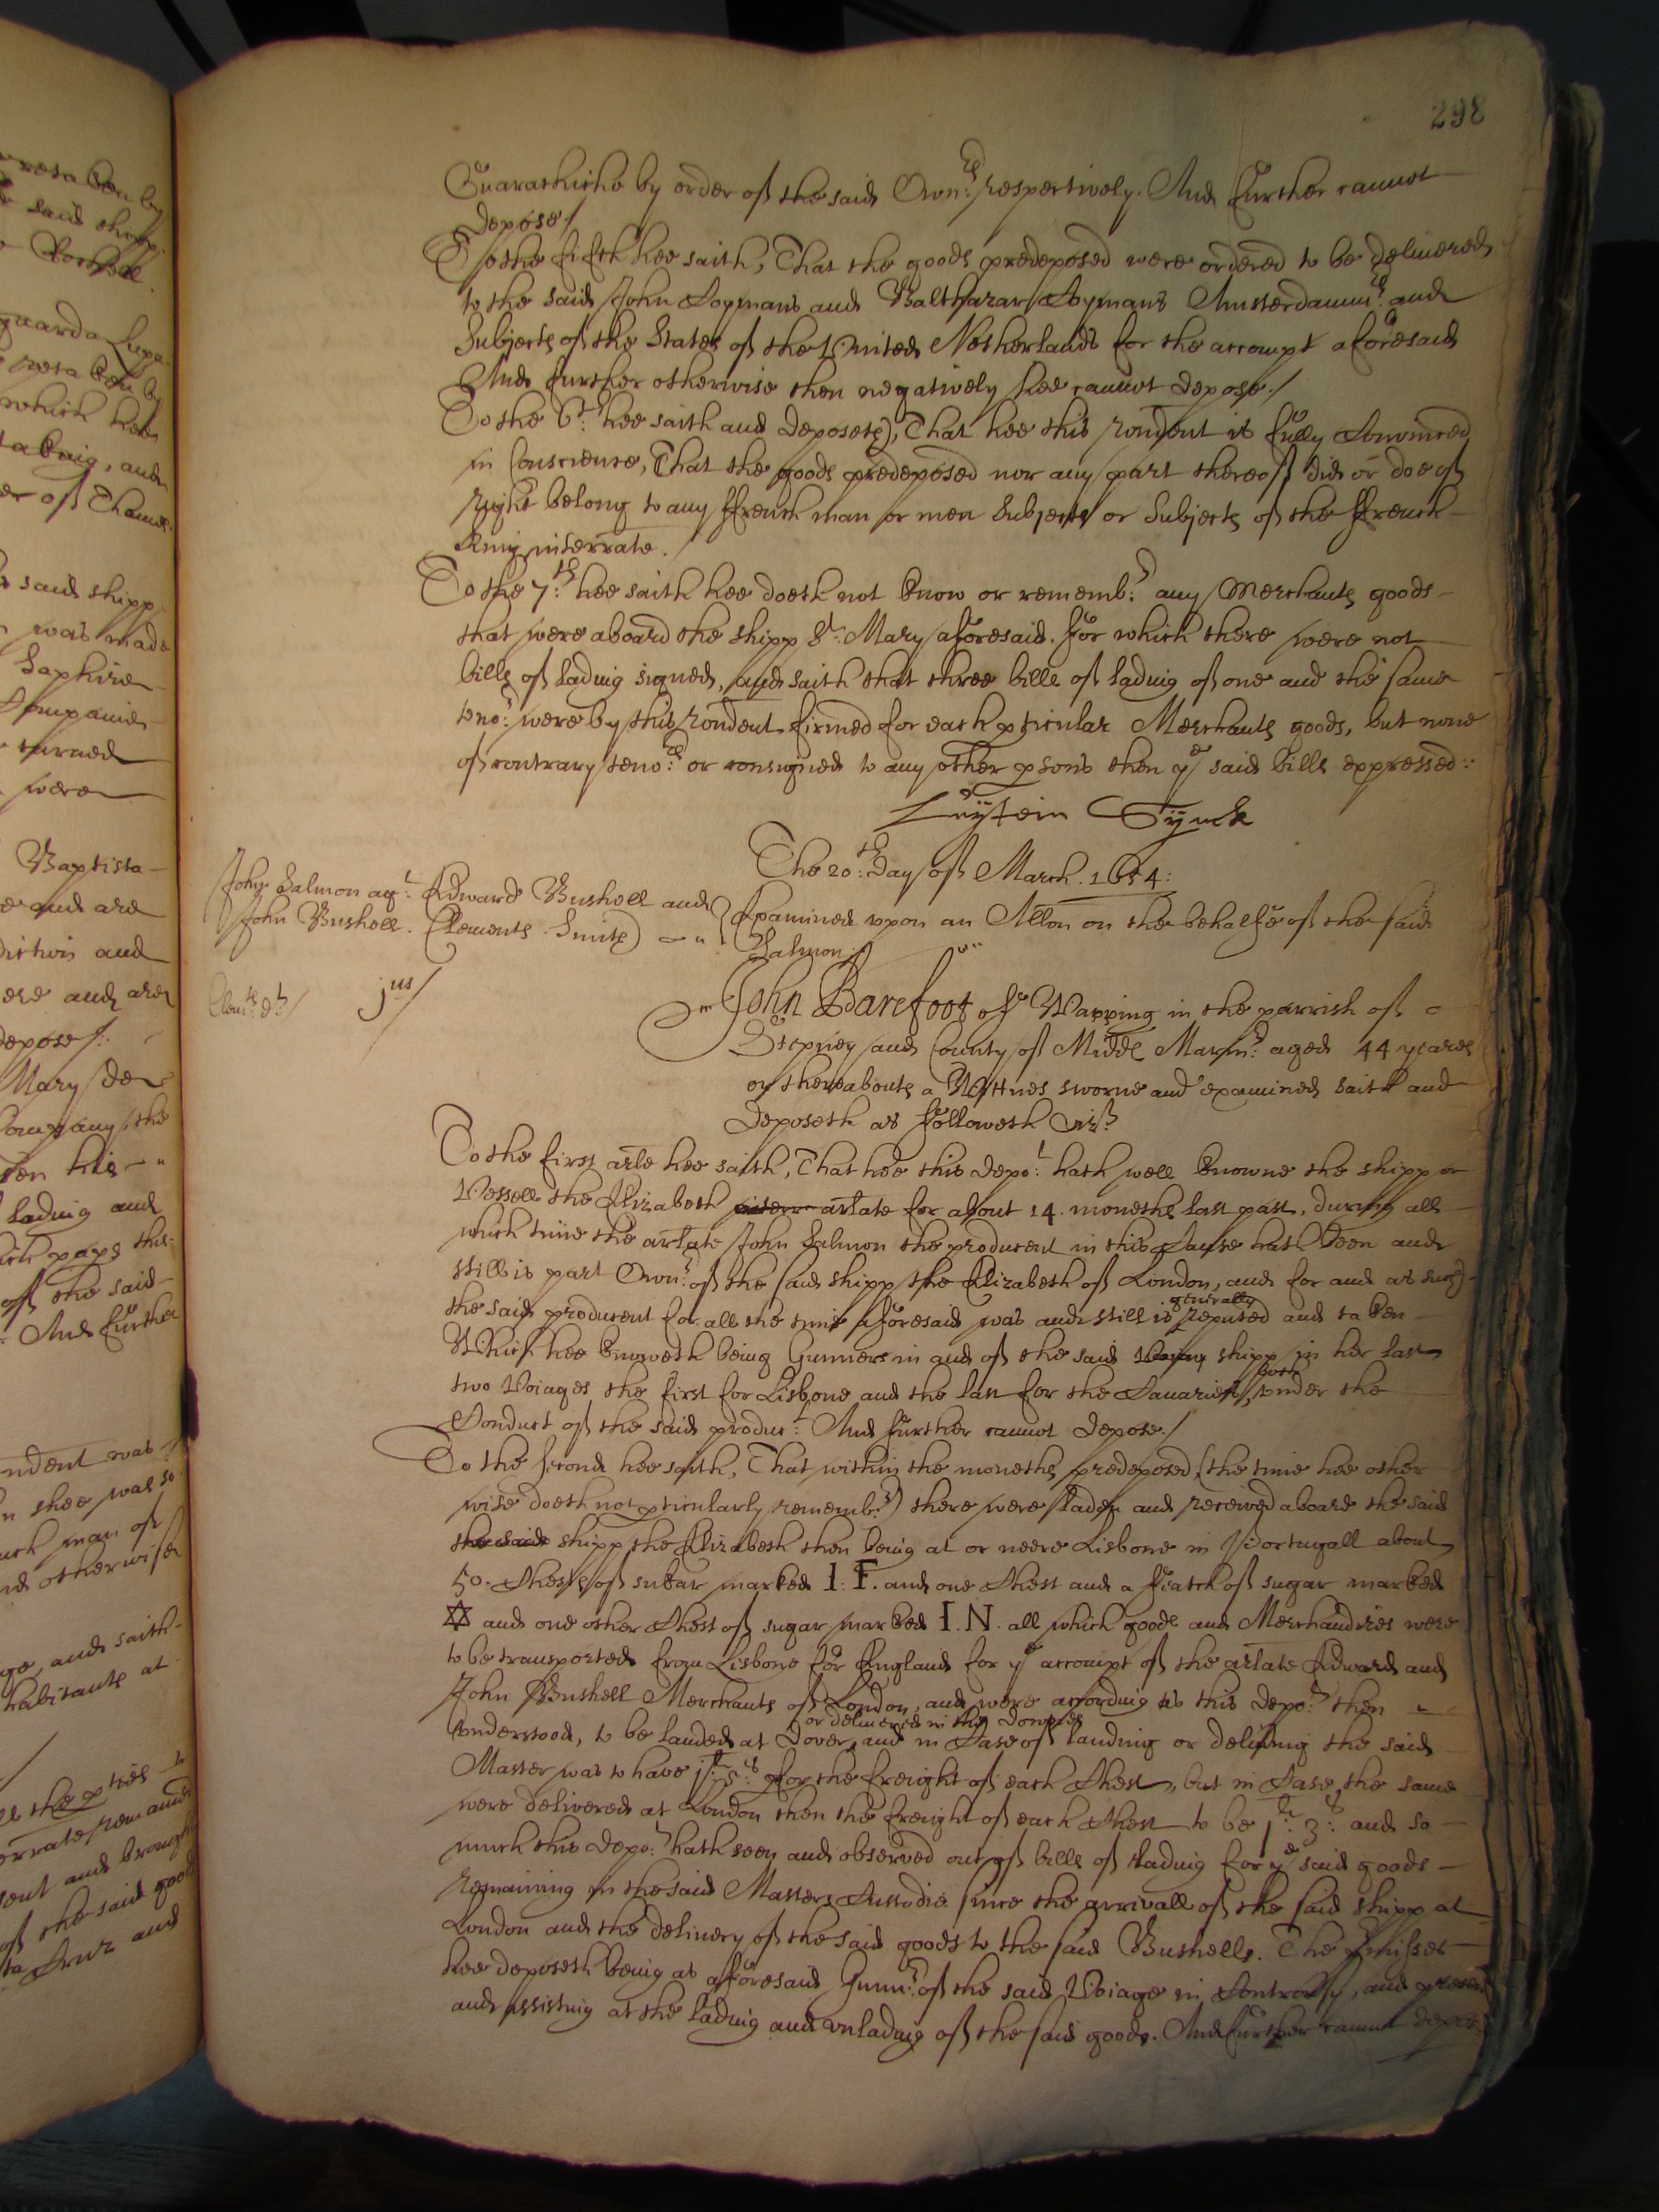 298
Guarachicho by order of the said Own:rs respectively. And further cannot
depose./
To the fifth hee saith, That the goods predeposed were ordered to be delivered
to the said John Soymans and Balthazar Soymans Amsterdamm:rs and
Subjects of the States of the United Netherlands for the accompt aforesaid
And further otherwise then negatively hee cannot depose./
To the 6:t hee saith and deposeth, That hee this rondent is fully Convinced
in Conscience, That the goods predeposed nor any part thereof did or doe of
right belong to any ffrench man or men Subjects or Subjects of the ffrench
King interrate./
To the 7:th hee saith hee doeth not know or rememb:r any Merchants goods
that were aboard the shipp S:t Mary aforesaid. for which there were not
bills of lading signed, and saith that three bills of lading of one and the same
teno:r were by this rondent firmed for each pticular Merchants goods, but none
of contrary teno:r or consigned to any other psons then ye said bills expressed:
Luÿtein Sÿnck
The 20:th day of March. 1654:
John Salmon ag:t Edward Bushell and
John Bushell. Clements. Smith
Examined upon an Allon on the behalfe of the said
Salmon./
Clem:ts d:t/
j:us/
John Barefoot of Wapping in the parrish of
Stepney and County of Middx Marin:r aged 44 yeares
or thereabouts a Wittnes sworne and examined saith and
deposeth as followeth vizt
To the first arle hee saith, That hee this depo:t hath well knowne the shipp or
Vessell the Elizabeth interr arlate for about 14. moneths last past, during all
which time the arlate John Salmon the producent in this Cause hath been and
still is part Own:r of the said shipp the Elizabeth of London, and for and as such
the said producent for all the time aforesaid was and still is
generally
reputed and taken
Which hee knoweth being Gunner in and of the said shipp in her last
two Voiages the first for Lisbone and the last for the Canaries,
both
under the
Conduct of the said produc:t And further cannot depose./
To the second hee saith, That within the moneths predeposed, (the time hee other
wise doeth not pticularly rememb:r) there were laden and received aboard the said
the said shipp the Elizabeth then being at or neere Lisbone in Portugall about
50. Chests of sugar marked I: F. and one Chest and a ffeatch of sugar marked
✡ and one other Chest of sugar marked I. N. all which goods and Merchandizes were
to be transported from Lisbone for England for ye accompt of the arlate Edward and
John Bushell Merchants of London, and were according as this depo:t then
understood, to be landed at Dover,
or delivered in the Downes
and in Case of landing or delivring the said
Master was to have j:li 5:s for the freight of each Chest, but in Case the same
were delivered at London then the freight of each Chest to be j:li 3:s and so
much this depo:t hath seen and observed out of bills of lading for ye said goods
remaining in the said Masters Custodie since the arrivall of the said shipp at
London and the delivery of the said goods to the said Bushells. The pmisses
hee deposeth being as aforesaid Gunn:r of the said Voiage in Controvsy, and present
and assisting at the lading and unlading of the said goods. And further cannot depose